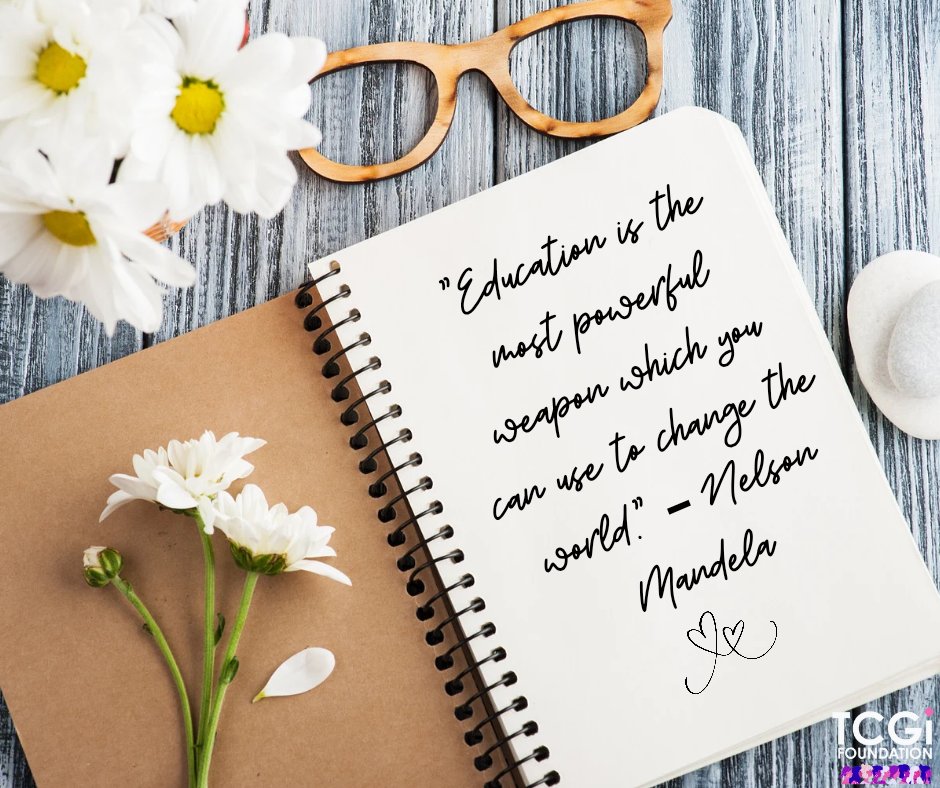 "Education is the
most powerful
weapon which you
can use to change the
world." - Nelson
Mandela
TCGi
FOUNDATION